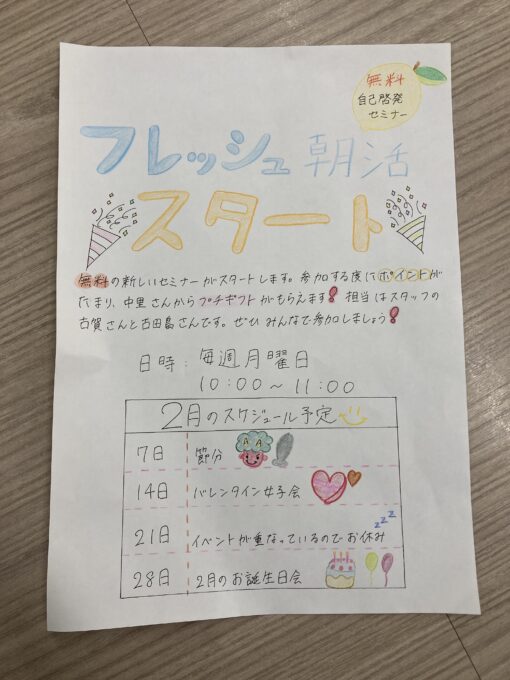 無料
自己啓発
セミナー
フレッシュ朝活
スタート
無料の新しいセミナーがスタートします。参加する度にポイントが
たまり、中里さんからプチギフトがもらえます! 担当はスタッフの
古賀さんと古田島さんです。ぜひみんなで参加しましょう!
日時:毎週月曜日
10:00~11:00
2月のスケジュール予定
7日 節分
14日 バレンタイン女子会
21日 イベントが重なっているのでお休み zzz
28日 2月のお誕生日会